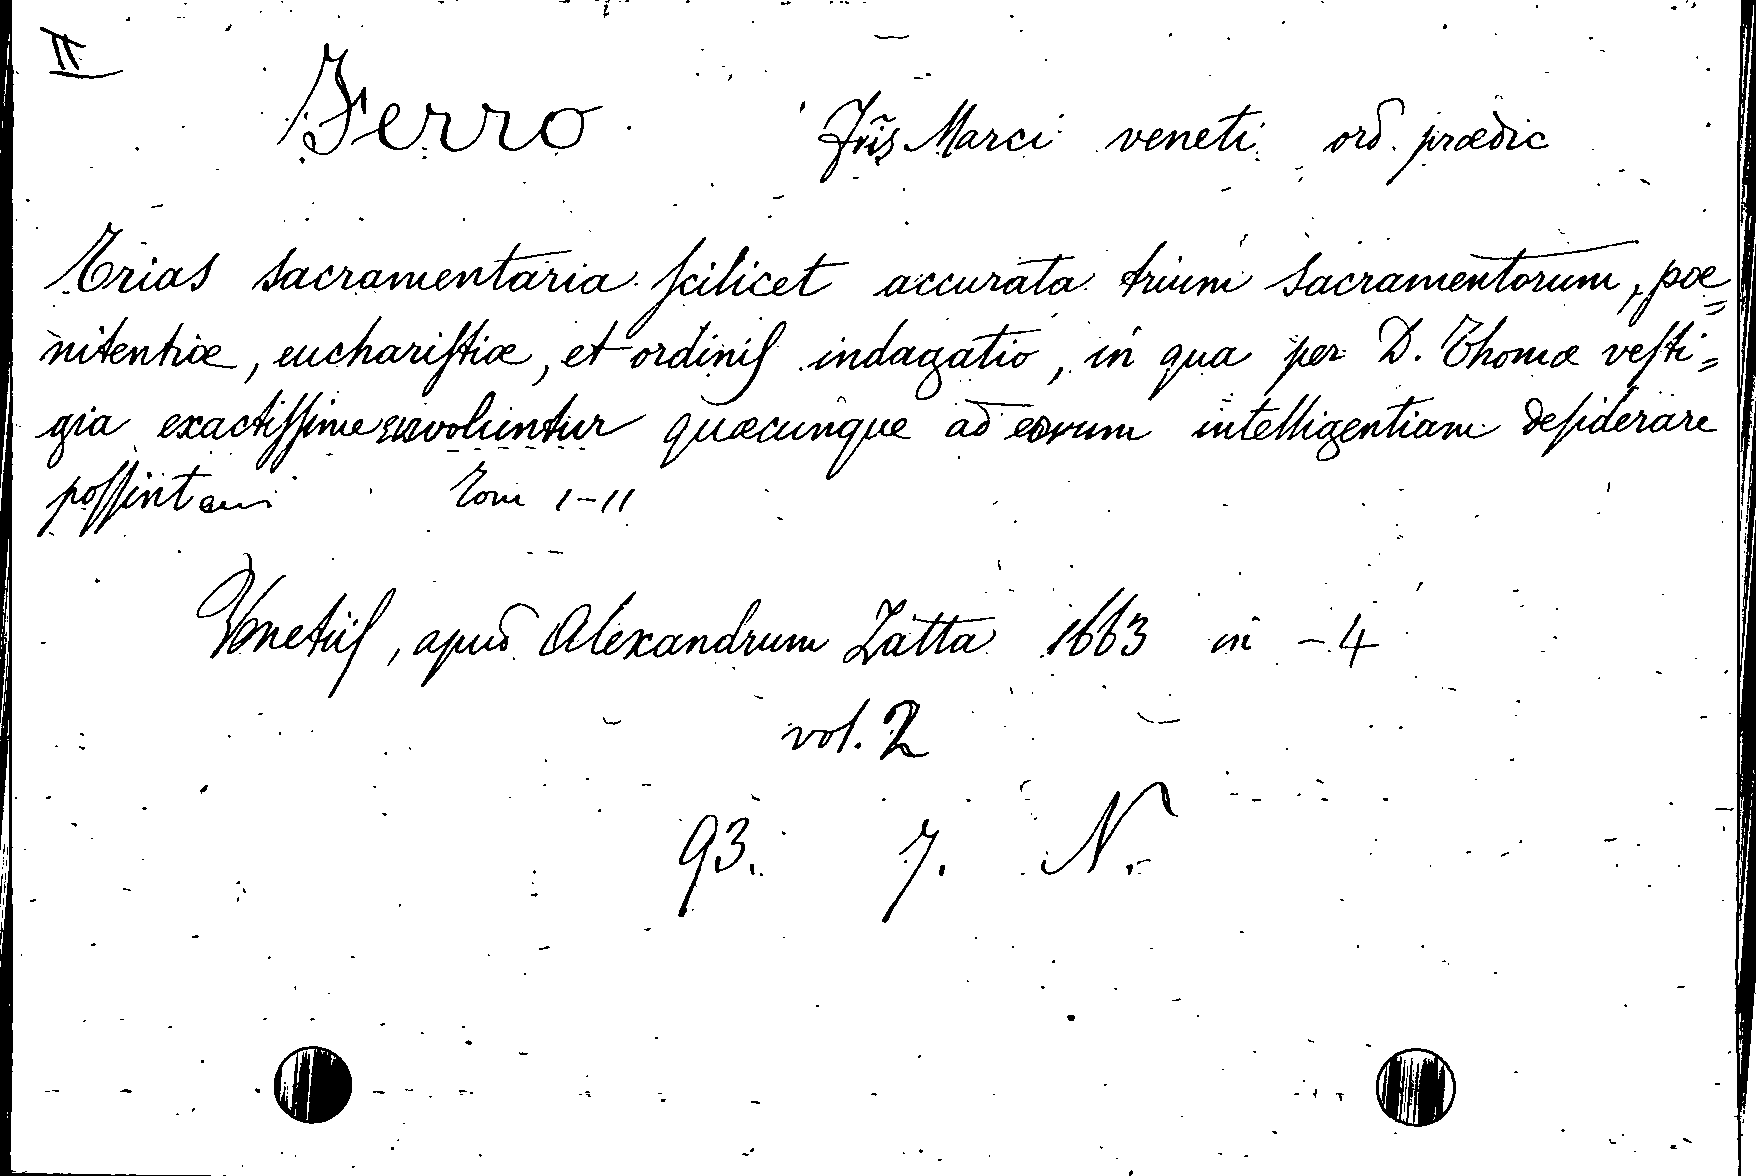 II
Ferro Fr̃is Marci veneti ord. prædic
Trias sacramentaria scilicet accurata trium sacramentorum, pœ=
nitentiæ, euchariſtiæ, et ordiniſ indagatio, in qua per D. Thomæ veſti=
gia exactiſſime evolvuntur quæcunque ad eorum intelligentiam deſiderare
poſſint Tom I-II
Venetiiſ, apud Alexandrum Zatta 1663 in -4
vol. 2
93. 7. N.